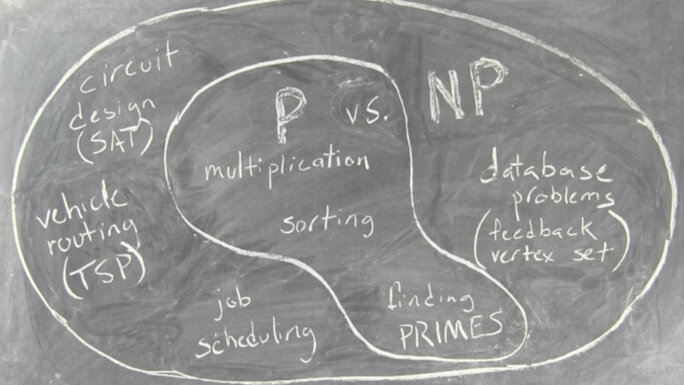 circuit
design
(SAT)
P vs. NP
multiplication
sorting
vehicle
routing
(TSP)
database
problems
(feedback
vertex set)
job
scheduling
finding
PRIMES